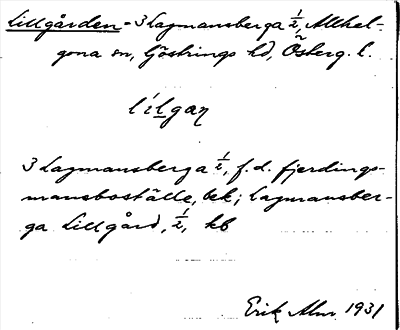 Lillgården - 3 Lagmansberga ½, Allhel-
gona sn, Göstrings hd, Österg. l.
lílgaɲ
3 Lagmansberga ½, f.d. fjerdings-
mansboställe, bek; Lagmansber-
ga Lillgård, ½, kb
Erik Alm 1931